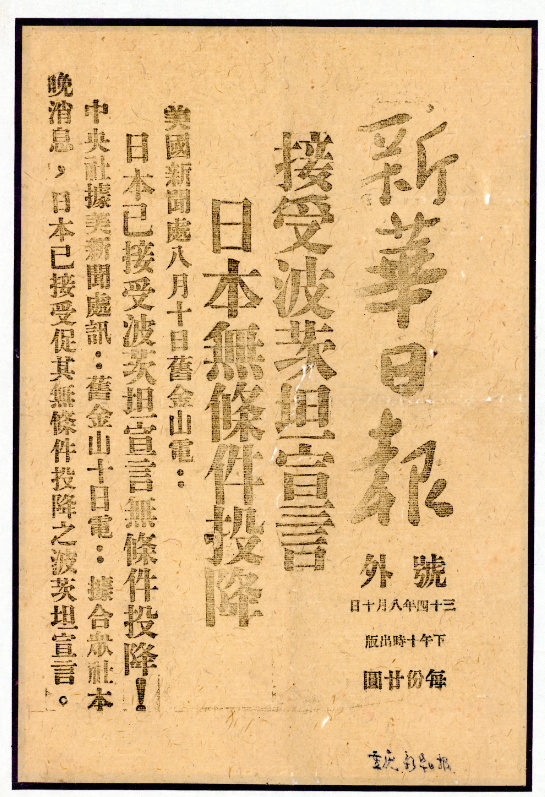 新華日報
號外
三十四年八月十日
下午十時出版
每份廿圓
接受波茨坦宣言
日本無條件投降
美國新聞處八月十日舊金山電：
日本已接受波茨坦宣言無條件投降！
中央社據美新聞處訊：舊金山十日電：據合眾社本
晚消息，日本已接受促其無條件投降之波茨坦宣言。
重庆新华日报